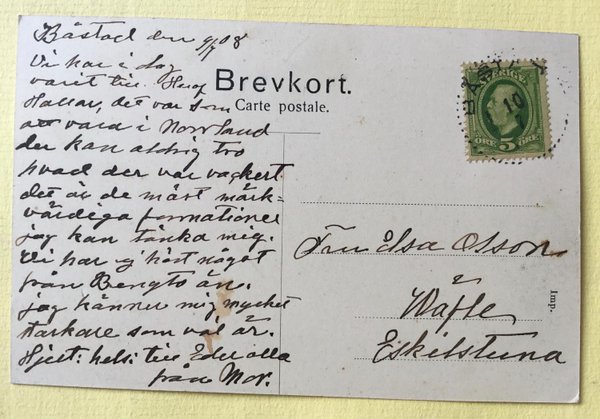 Båstad den 9/7 08
Vi har i dag
varit till Hofs
Hallar, det var som
att vara i Norrland
du kan aldrig tro
hvad der var vackert
det är de mäst märk-
värdiga formationer
jag kan tänka mig.
Vi har ej hört något
från Bengts än.
jag känner mig mycket
starkare som väl är.
Hjertl: hels: till Eder alla
från Mor.
Brevkort.
Carte postale.
BÅSTAD
10
7
SVERIGE
ÖRE 5 ÖRE
Fru Elsa Olsson
Eskilstuna
Imp.